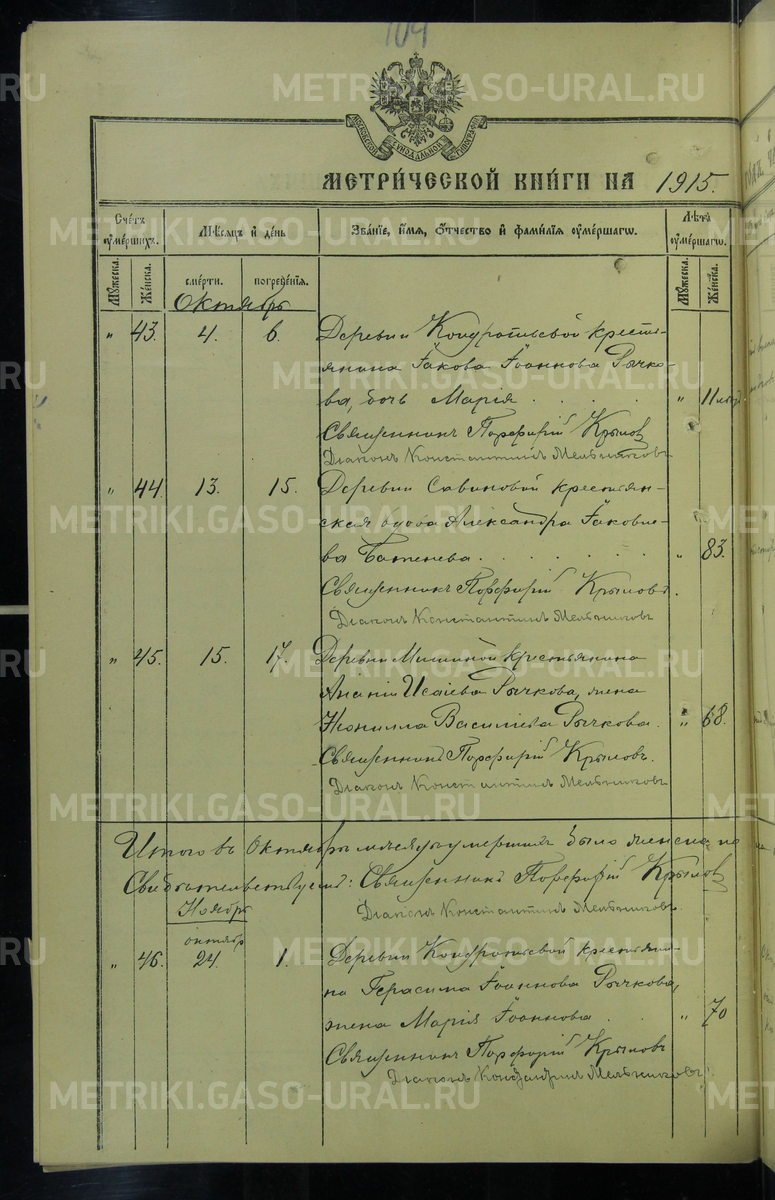 104
МОСКОВСКОЙ СѴНОДАЛЬНОЙ ТИПОГРАФІИ
МЕТРИ́ЧЕСКОЙ КНИ́ГИ НА 1915.
Сче́тъ ᲂу҆ме́ршихъ. Мѣ́сяцъ и҆ де́нь Зва́нїе, и҆́мя, ѻ҆́тчество и҆ фами́лїя ᲂу҆ме́ршагѡ. Лѣ́та ᲂу҆ме́ршагѡ.
Мꙋ́жеска. Же́нска. сме́рти. погребе́нїя. Мꙋ́жеска. Же́нска.
Октябрь
" 43. 4. 6. Деревни Кондратьевой кресть-
янина Іакова Іоаннова Рычко-
ва, дочь Марія . . . . " 11 лѣтъ
Священникъ Порфирій Крыловъ
Діаконъ Константинъ Мельниковъ
" 44 13. 15. Деревни Савиновой крестьян-
ская вдова Александра Іаковле-
ва Батенева . . . . . . " 83.
Священникъ Порфирій Крыловъ.
Діаконъ Константинъ Мельниковъ
" 45. 15. 17. Деревни Мишиной крестьянина
Ананіи Исаіева Рычкова, жена
Неонилла Васильева Рычкова. " 68.
Священникъ Порфирій Крыловъ.
Діаконъ Константинъ Мельниковъ
Итого въ Октябрѣ мѣсяцѣ умершихъ было женска по
Свидѣтельствуемъ: Священникъ Порфирій Крыловъ
Ноябрь Діаконъ Константинъ Мельниковъ.
октябр
" 46. 24. 1. Деревни Кондратьевой крестьяни-
на Герасима Іоаннова Рычкова,
жена Марія Іоаннова . . " 70
Священникъ Порфирій Крыловъ
Діаконъ Константинъ Мельниковъ.
METRIKI.GASO-URAL.RU